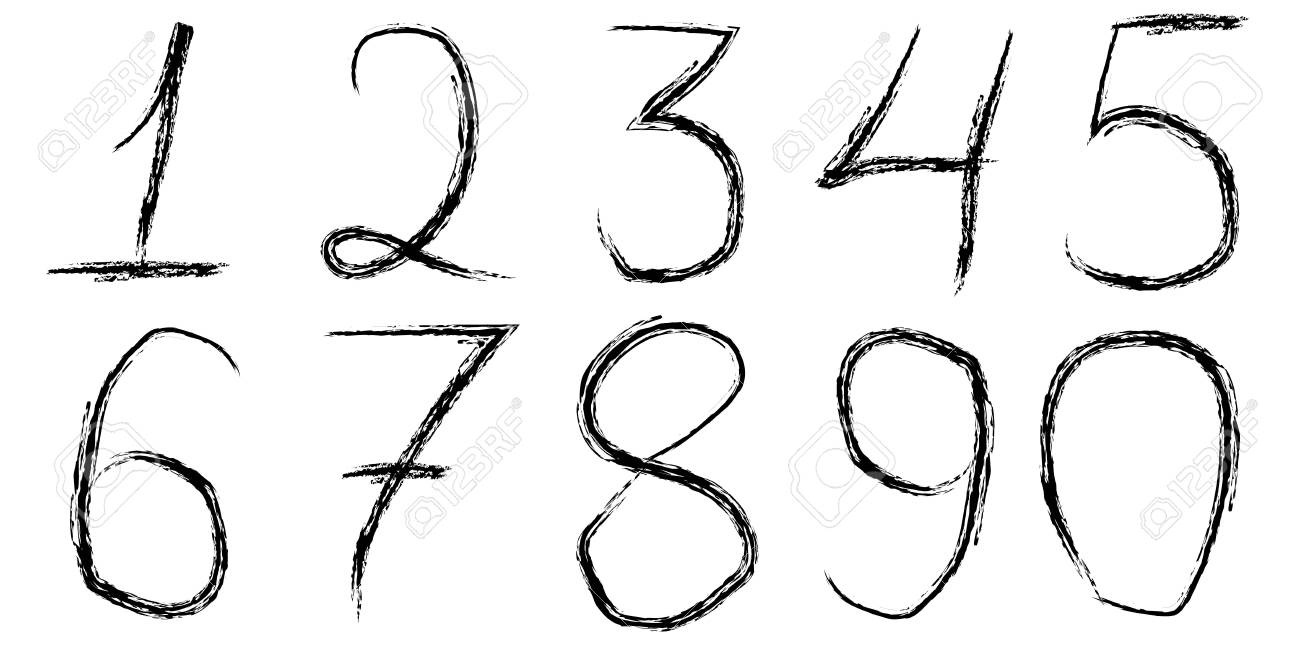 1 2 3 4 5
6 7 8 9 0
123RF
123RF
123RF
123RF
123RF
123RF